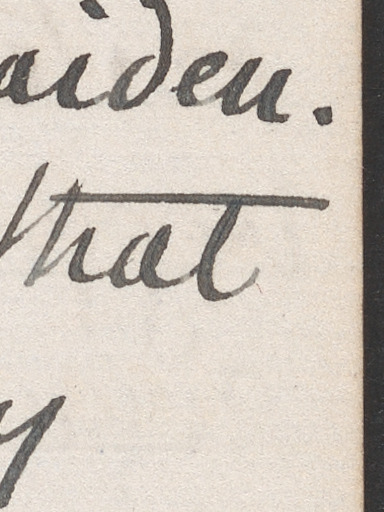 aiden.
that
y